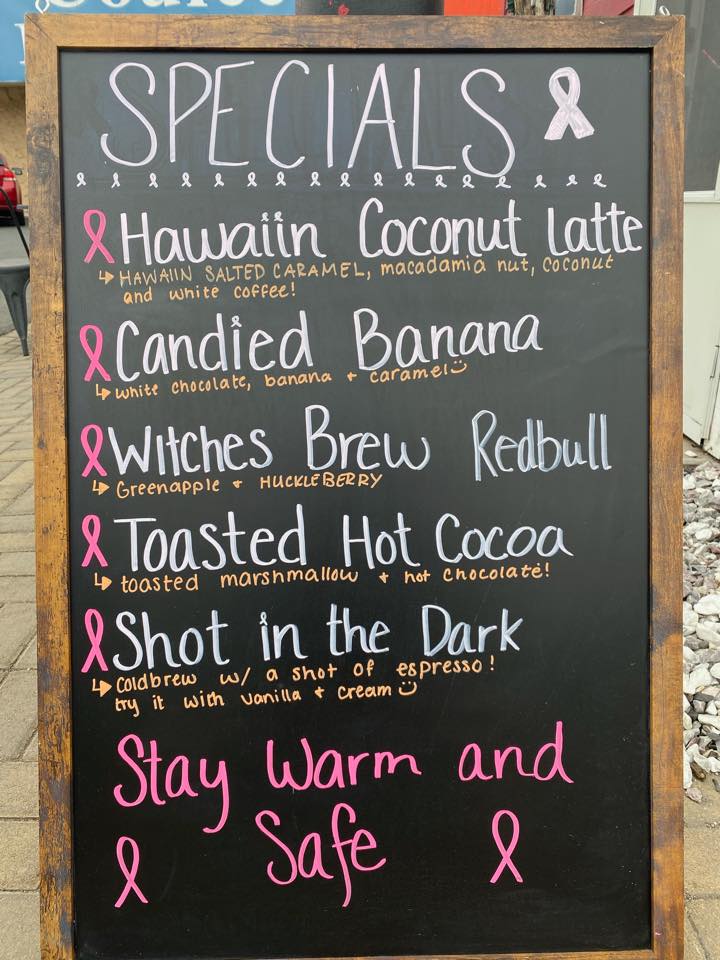 SPECIALS
Hawaiin Coconut latte
HAWAIIN SALTED CARAMEL, macadamia nut, coconut
and white coffee!
Candied Banana
white chocolate, banana + caramel
Witches Brew Redbull
Greenapple + HUCKLEBERRY
Toasted Hot Cocoa
toasted marshmallow + hot chocolate!
Shot in the Dark
coldbrew w/ a shot of espresso!
try it with vanilla + cream
Stay Warm and
Safe